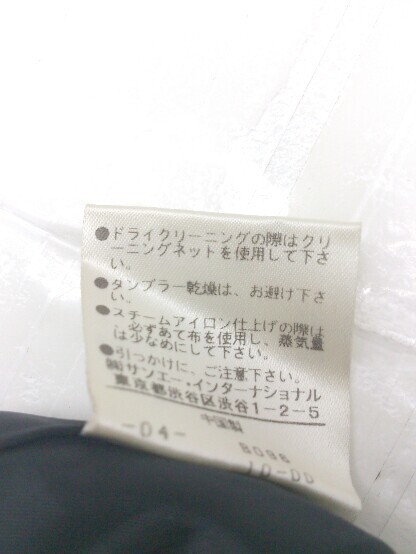 ●ドライクリーニングの際はクリ
ーニングネットを使用して下さ
い。
●タンブラー乾燥は、お避け下さ
い。
●スチームアイロン仕上げの際は
必ずあて布を使用し、蒸気量
は少なめにして下さい。
●引っかけに、ご注意下さい。
㈱サンエー・インターナショナル
東京都渋谷区渋谷1-2-5
中国製
-04-